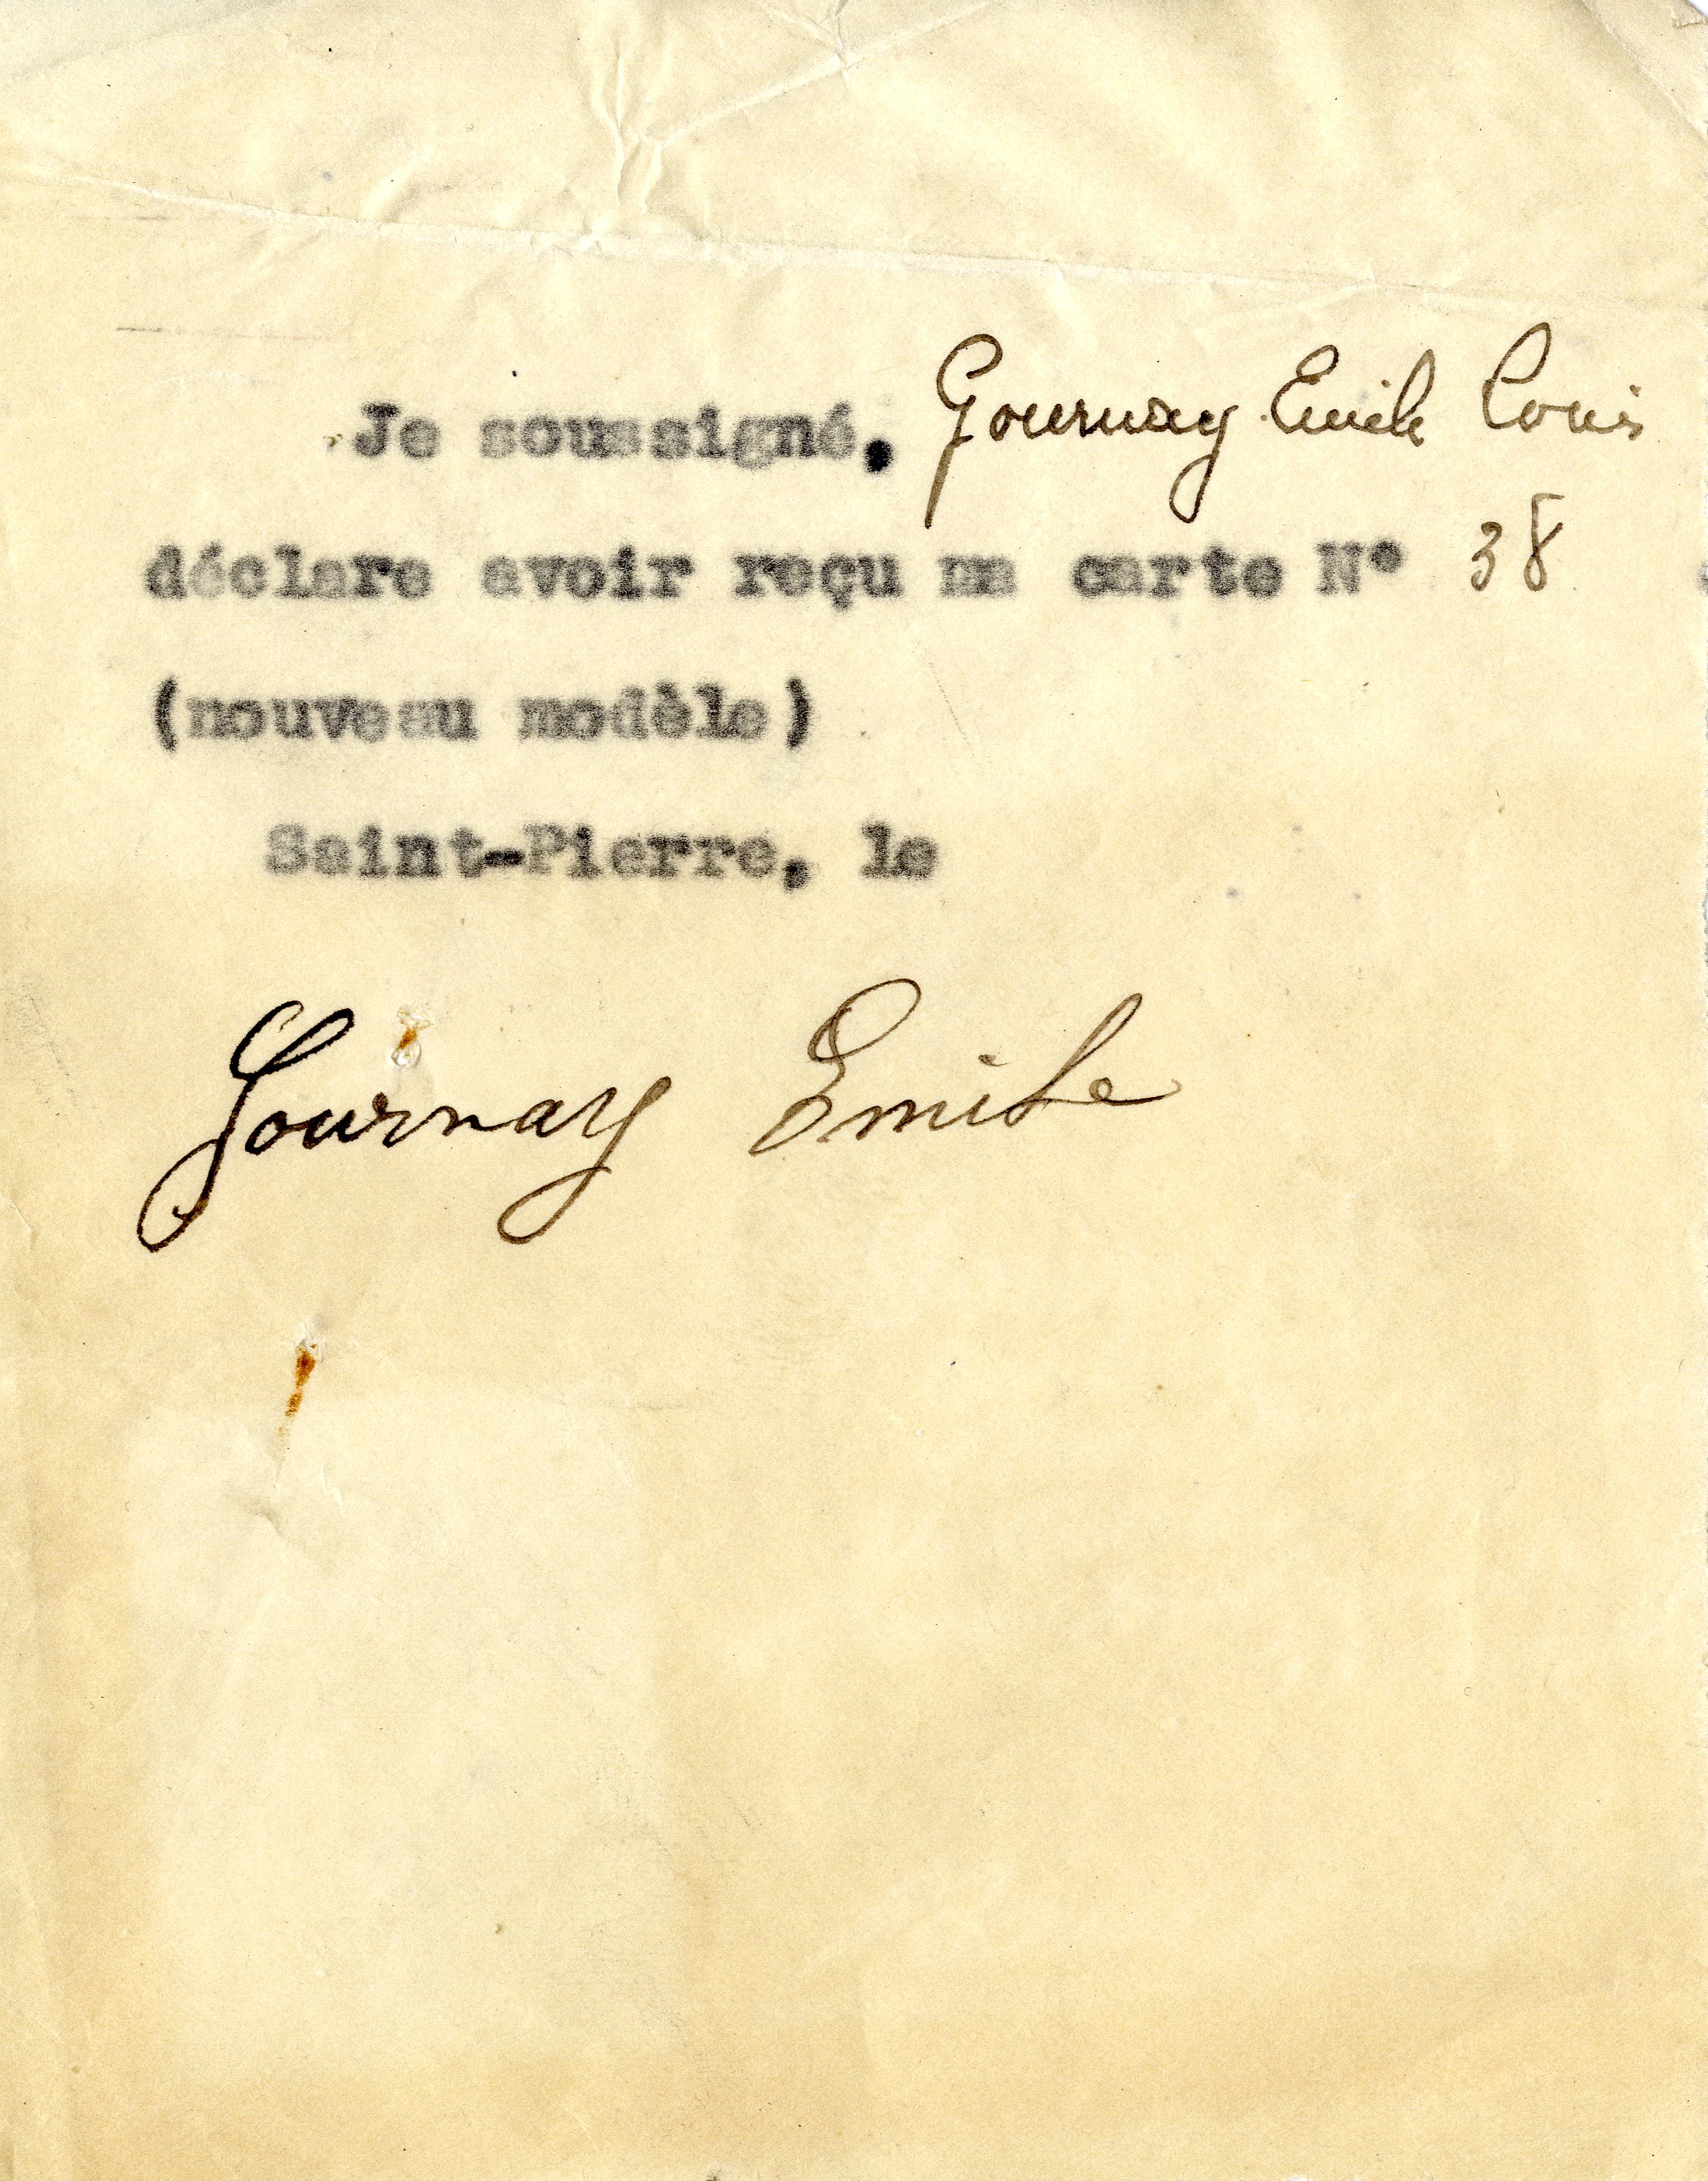 Je soussigné, Gournay Emile Louis
déclare avoir reçu ma carte N° 38 .
(nouveau modèle)
Saint-Pierre, le
Gournay Emile